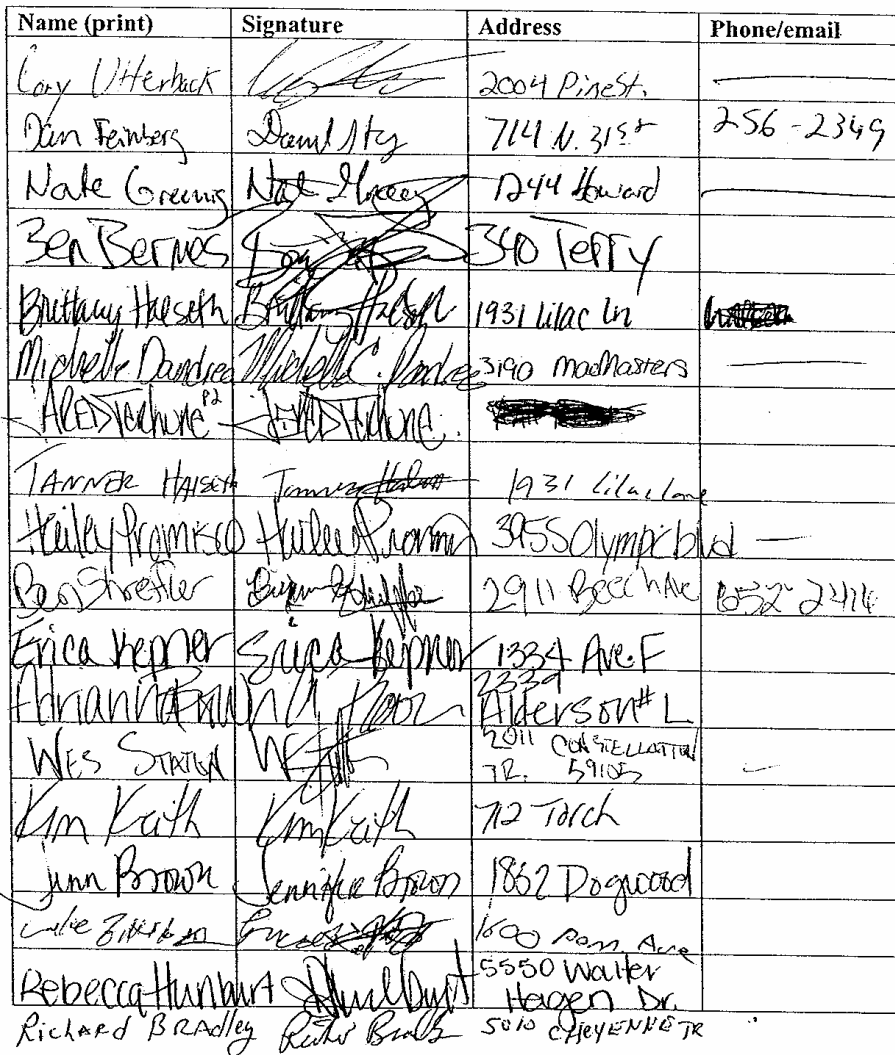 Name (print) Signature Address Phone/email
Cory Utterback 2004 Pine St.
Dan Feinberg 714 N. 31st 256-2349
Nate 1244 Howard
Ben Bernes 340 Terry
Brittany Halseth Brittany Halseth 1931 Lilac Ln
Michelle Dandrea Michelle C. Dandrea 3190 MacMasters
Jared Terhune Jared Terhune
TANNER HALSETH Tanner Halseth 1931 Lilac Lane
Hailey Promisco Hailey Promisco 3955 Olympic blvd
Ben Shreffler 2911 Beech Ave 652-2414
Erica Kepner Erica Kepner 1334 Ave. F
2339
Adrianna Brown Alderson # L
WES STATION 2011 CONSTELLATION
TR. 59105
Kim Keith Kim Keith 712 Torch
Jenn Brown Jennifer Brown 1862 Dogwood
1600
Rebecca Hunhurt 5550 Walter
Hagen Dr.
Richard BRADley 5010 CHEYENNE TR